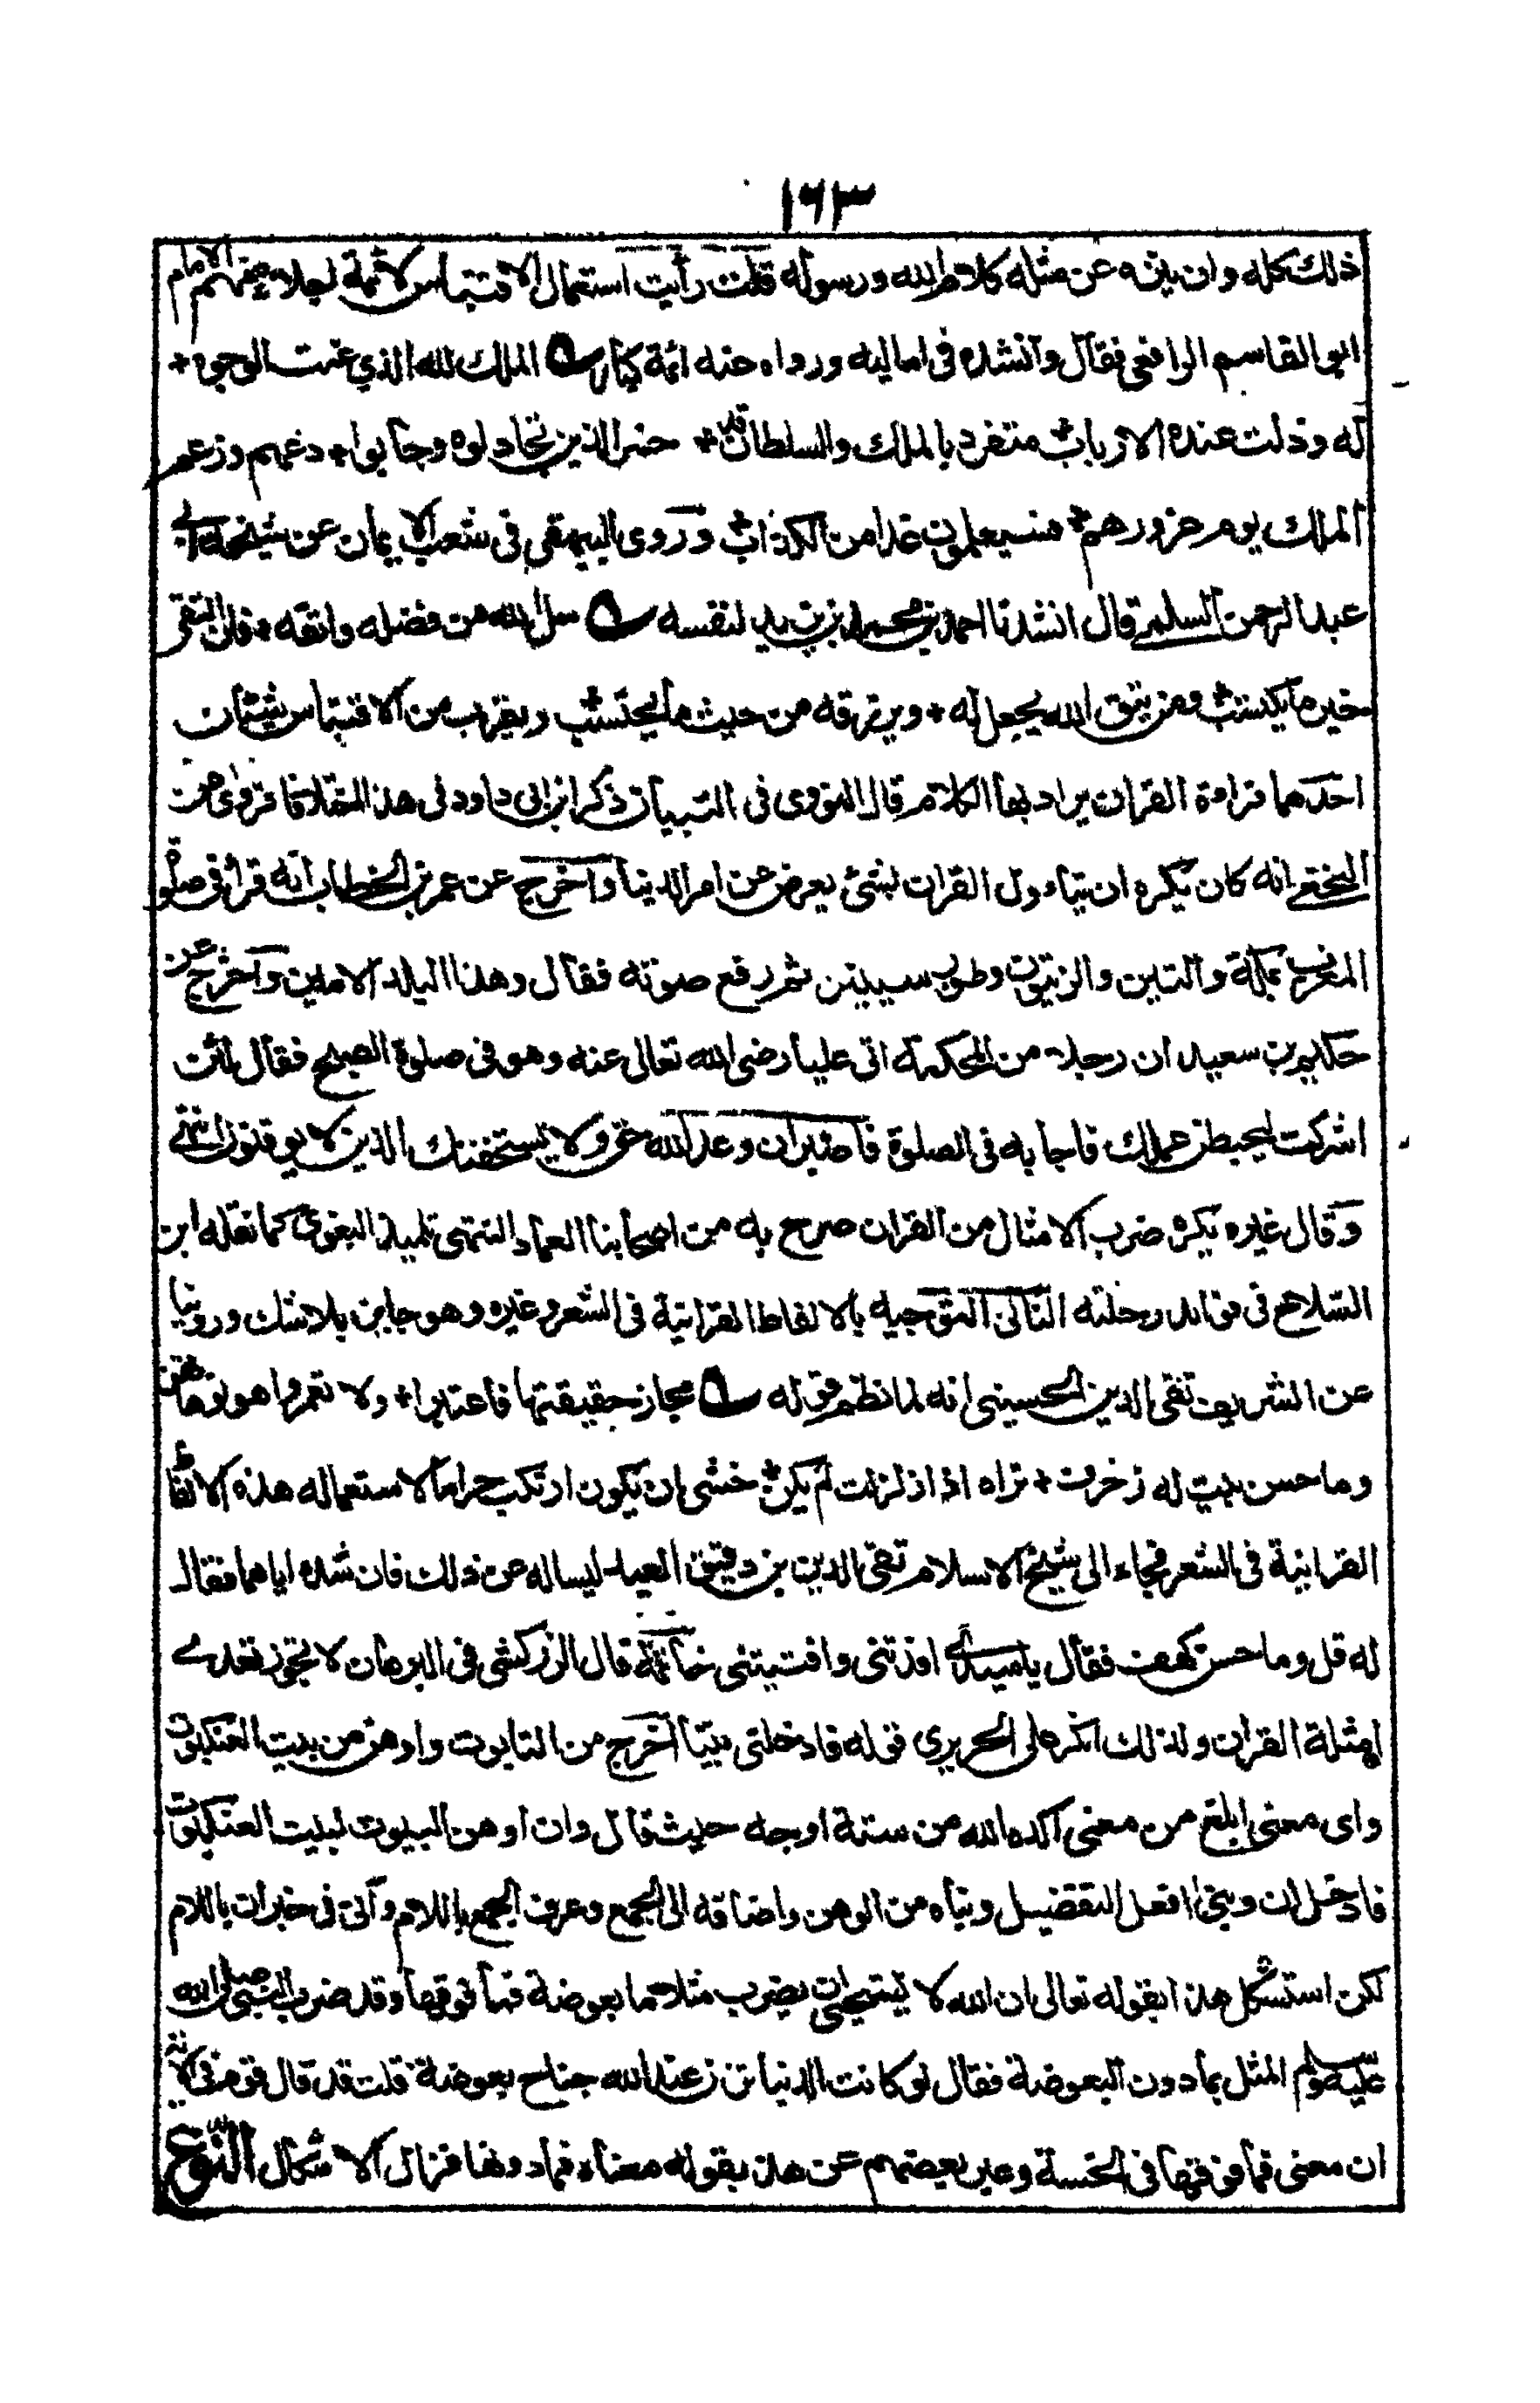 ١٦٣
ذلك كله وان ينزه عن مثله كلام الله ورسوله قلت رأيت استعمال الاقتباس لائمة اجلاء منهم الامام
ابو القاسم الرافعى فقال وانشده فى اماليه ورواه عنه ائمة كبار الملك لله الذي عنت الوجوه +
له وذلت عنده الارباب + متفرد بالملك والسلطان قد + خسر الذين تجادلوه وجابوا + دعهم وزعم
الملك يوم غرورهم + فسيعلمون غدا من الكذاب + وروى البيهقى فى شعب الايمان عن شيخه ابى
عبد الرحمن السلمى قال انشدنا احمد بن محمد بن يزيد لنفسه سل الله من فضله واتقه + فان التقى
خير ما يكتسب + ومن يتق الله يجعل له + ويرزقه من حيث لا يحتسب + ويقرب من الاقتباس شيئان
احدهما قراءة القران يراد بها الكلام قال النووى فى التبيان ذكر ابن ابى داود فى هذا اختلافا فروى عن
النخعى انه كان يكره ان يتاءول القران بشئ يعرض من امر الدنيا واخرج عن عمر بن الخطاب انه قرأ فى صلوة
المغرب بمكة والتين والزيتون وطور سينين ثم رفع صوته فقال وهذا البلد الامين واخرج عن
حكيم بن سعيد ان رجلا من المحكمة اتى عليا رضى الله تعالى عنه وهو فى صلوة الصبح فقال لئن
اشركت ليحبطن عملك فاجابه فى الصلوة فاصبر ان وعد الله حق ولا يستخفنك الذين لا يوقنون انتهى
وقال غيره يكره ضرب الامثال من القران صرح به من اصحابنا العماد النيهى تلميذ البغوى كما نقله ابن
الصلاح فى فوائد رحلته الثانى التوجيه بالالفاظ القرانية فى الشعر وغيره وهو جايز بلا شك وروينا
عن الشريف تقى الدين الحسينى انه لما نظم قوله مجاز حقيقتها فاعتبروا + ولا تعمروا هونوها تهن
وما حسن بيت له زخرف + تراه اذا زلزلت لم يكن + خشى ان يكون ارتكب حراما لاستعماله هذه الالفاظ
القرانية فى الشعر فجاء الى شيخ الاسلام تقى الدين بن دقيق العيد ليساله عن ذلك فانشده اياهما فقال
له قل وما حسن كهف فقال يا سيدى افدتنى وافتيتنى خاتمة قال الزركشى فى البرهان لا يجوز تعدى
امثلة القران ولذلك انكر على الحريري قوله فادخلنى بيتا اخرج من التابوت واوهن من بيت العنكبوت
واى معنى ابلغ من معنى اكده الله من ستة اوجه حيث قال وان اوهن البيوت لبيت العنكبوت
فادخل ان وبنى افعل التفضيل وبناه من الوهن واضافه الى الجمع وعرف الجمع باللام واتى فى خبر ان باللام
لكن استشكل هذا بقوله تعالى ان الله لا يستحيى ان يضرب مثلا ما بعوضة فما فوقها وقد ضرب النبى صلى الله
عليه وسلم المثل بما دون البعوضة فقال لو كانت الدنيا تزن عند الله جناح بعوضة قلت قد قال قوم فى الاية
ان معنى فما فوقها فى الخسة وعبر بعضهم عن هذا بقوله معناه فما دونها فزال الاشكال النوع